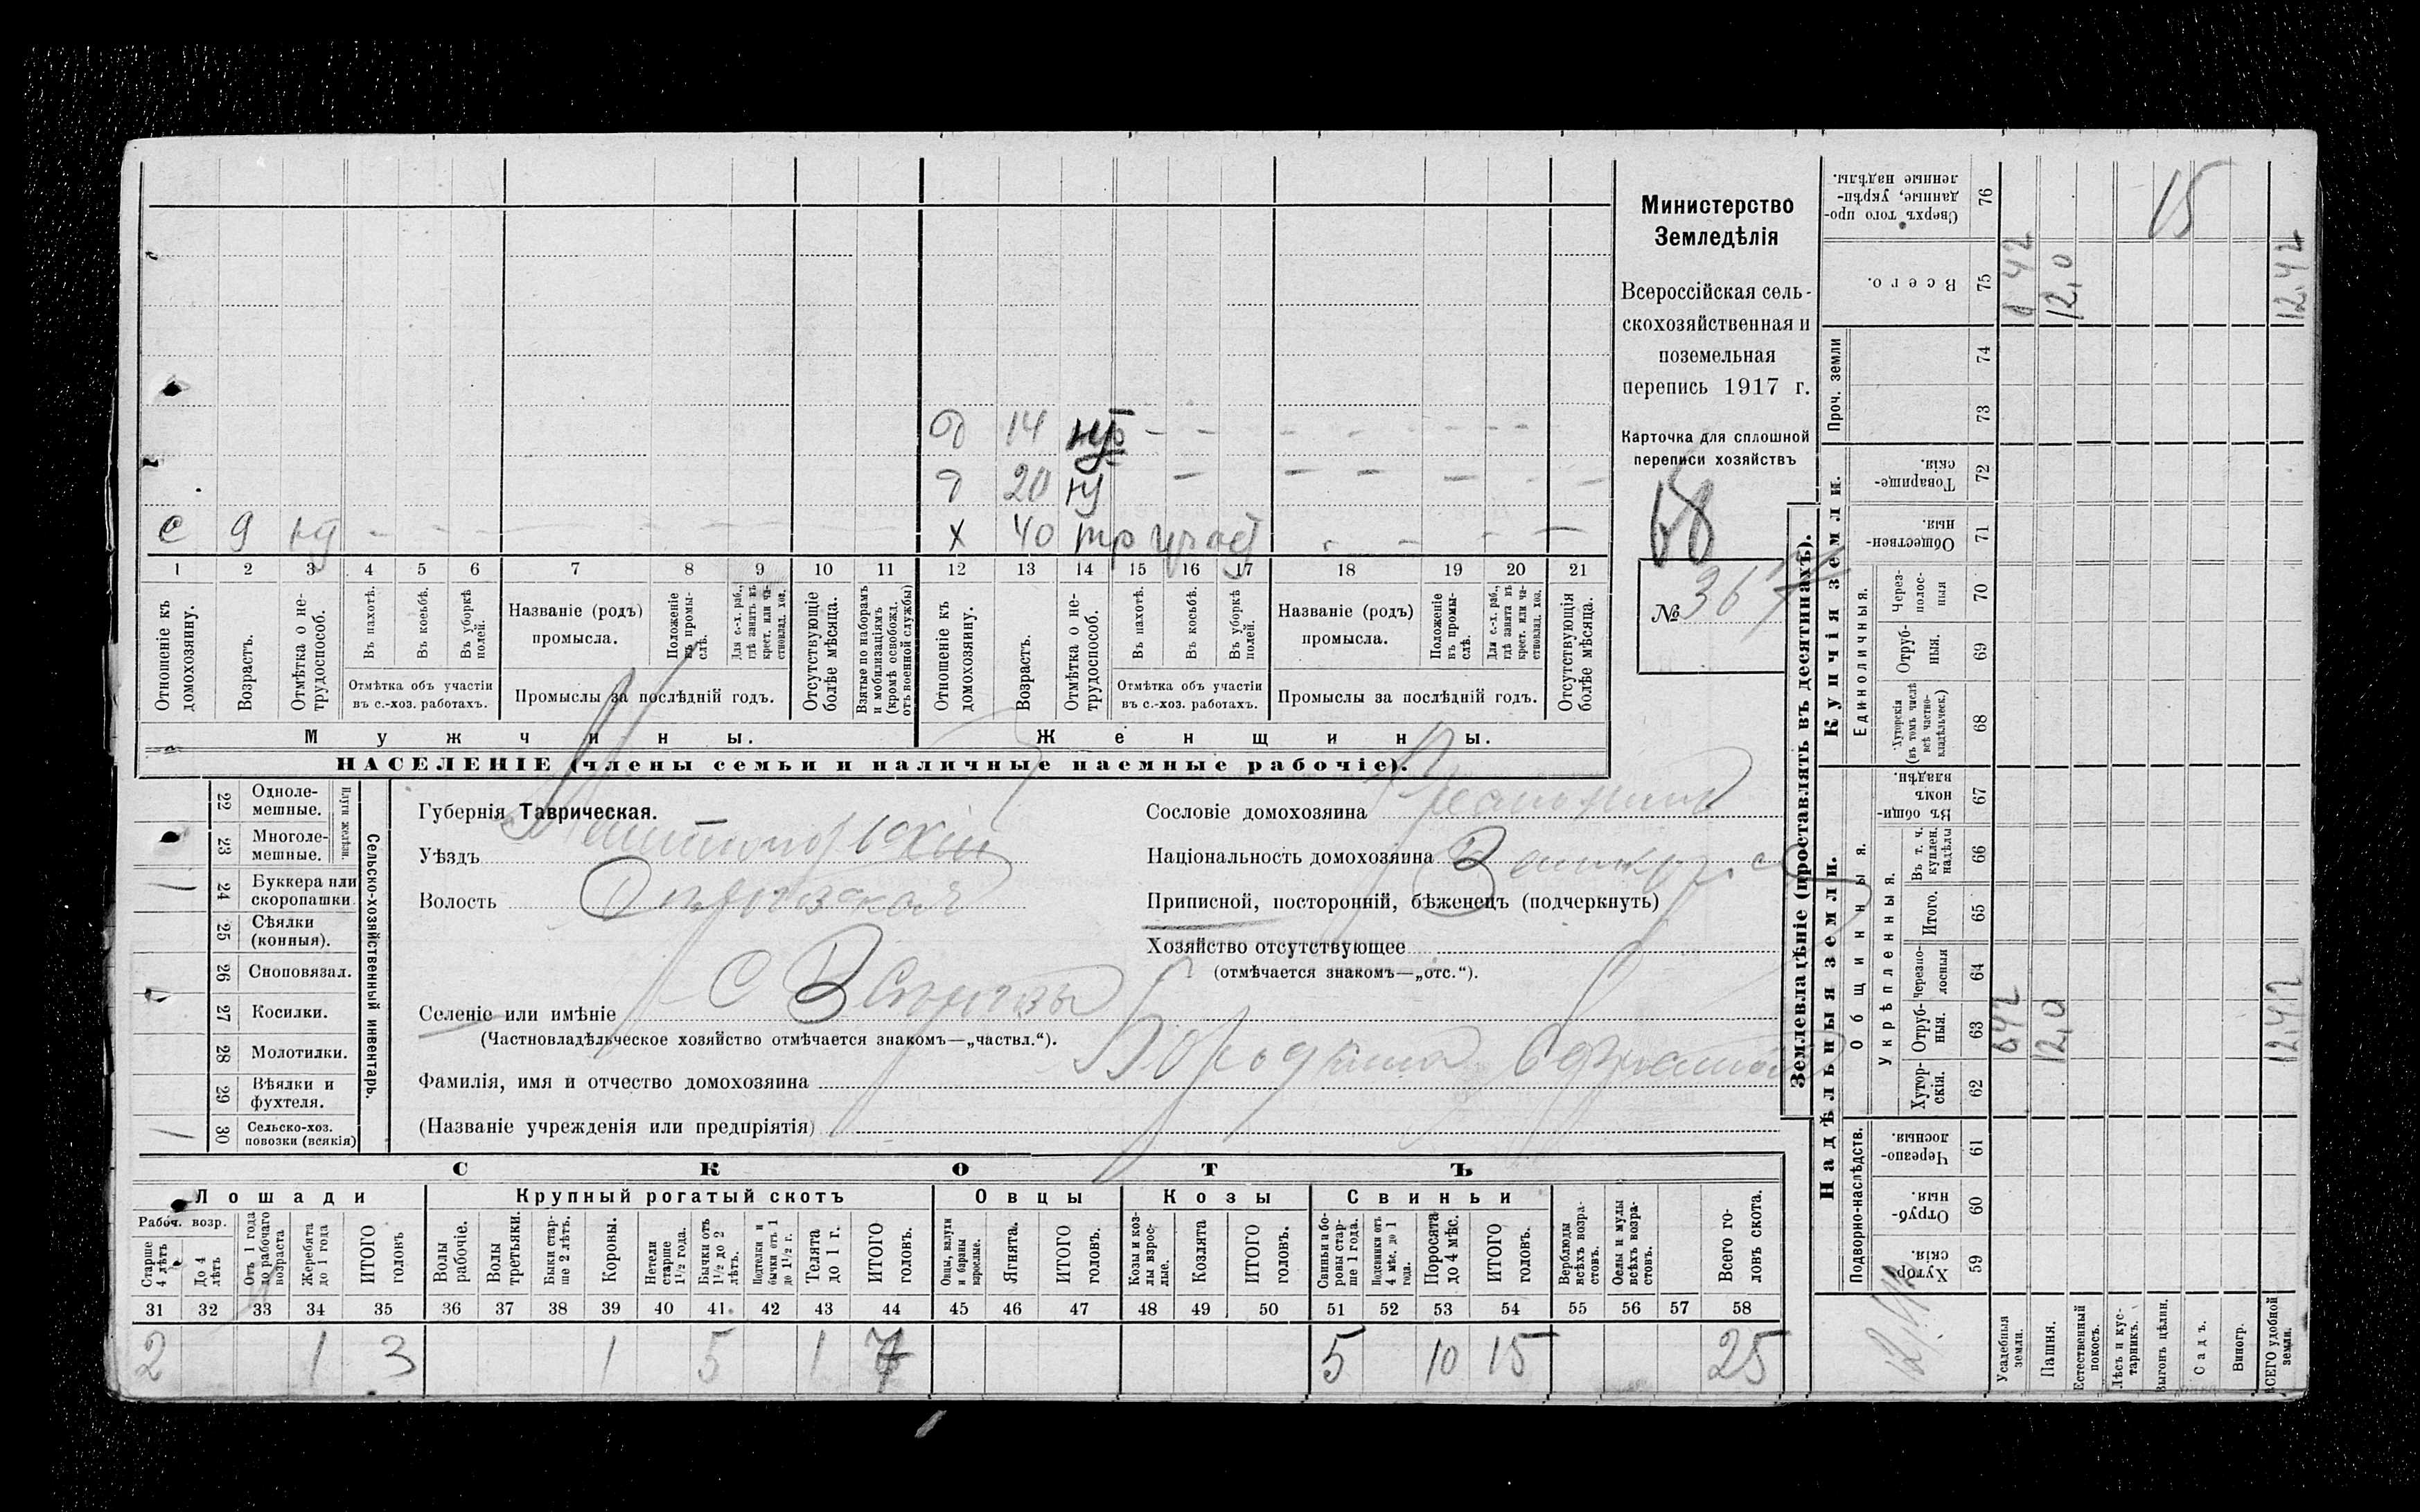 Министерство
Земледѣлія
Всероссійская сель-
скохозяйственная и
поземельная
перепись 1917 г.
Карточка для сплошной
переписи хозяйствъ
68
№ 367
б 14 - - - - - - -
20 - - - - - -
с 9 - - - - - -
х 40 - - - -
1 2 3 4 5 6 7 8 9 10 11 12 13 14 15 16 17 18 19 20 21
Отношеніе къ домохозяину.
Возрастъ.
Отмѣтка о не-трудоспособ.
Въ пахотѣ.
Въ косьбѣ.
Въ уборкѣ полей.
Названіе (родъ) промысла.
Положеніе въ промы-слѣ.
Для с.-х. раб., гдѣ занятъ въ крест. или ча-стновлад. хоз.
Отсутствующіе болѣе мѣсяца.
Взятые по наборамъ и мобилизаціямъ (кромѣ освобожд. отъ военной службы)
Отношеніе къ домохозяину.
Возрастъ.
Отмѣтка о не-трудоспособ.
Въ пахотѣ.
Въ косьбѣ.
Въ уборкѣ полей.
Названіе (родъ) промысла.
Положеніе въ промы-слѣ.
Для с.-х. раб., гдѣ занята въ крест. или ча-стновлад. хоз.
Отсутствующія болѣе мѣсяца.
Отмѣтка объ участіи въ с.-хоз. работахъ.
Промыслы за послѣдній годъ.
Отмѣтка объ участіи въ с.-хоз. работахъ.
Промыслы за послѣдній годъ.
Мужчины.
Женщины.
НАСЕЛЕНІЕ (члены семьи и наличные наемные рабочіе).
Сельско-хозяйственный инвентарь.
Плуги желѣзн.
22 Одноле-мешные.
23 Многоле-мешные.
24 Буккера или скоропашки
25 Сѣялки (конныя).
26 Сноповязал.
27 Косилки.
28 Молотилки.
29 Вѣялки и фухтеля.
30 Сельско-хоз. повозки (всякія)
Губернія Таврическая.
Уѣздъ
Волость
Селеніе или имѣніе
(Частновладѣльческое хозяйство отмѣчается знакомъ—„частвл.“).
Фамилія, имя и отчество домохозяина
(Названіе учрежденія или предпріятія)
Сословіе домохозяина
Національность домохозяина
Приписной, посторонній, бѣженецъ (подчеркнуть)
Хозяйство отсутствующее
(отмѣчается знакомъ—„отс.“).
СКОТЪ
Лошади
Крупный рогатый скотъ
Овцы
Козы
Свиньи
Рабоч. возр.
Старше 4 лѣтъ
До 4 лѣтъ
Отъ 1 года до рабочаго возраста
Жеребята до 1 года
ИТОГО головъ
Волы рабочіе.
Волы третьяки.
Быки стар-ше 2 лѣтъ.
Коровы.
Нетели старше 1½ года.
Бычки отъ 1½ до 2 лѣтъ.
Подтелки и бычки отъ 1 до 1½ г.
Телята до 1 г.
ИТОГО головъ.
Овцы, валухи и бараны взрослые.
Ягнята.
ИТОГО головъ.
Козы и коз-лы взрос-лые.
Козлята
ИТОГО головъ.
Свиньи и бо-ровы стар-ше 1 года.
Подсвинки отъ 4 мѣс. до 1 года.
Поросята до 4 мѣс.
ИТОГО головъ.
Верблюды всѣхъ возра-стовъ.
Ослы и мулы всѣхъ возра-стовъ.
Всего го-ловъ скота.
31 32 33 34 35 36 37 38 39 40 41 42 43 44 45 46 47 48 49 50 51 52 53 54 55 56 57 58
2 1 3 1 5 1 7 5 10 15 25
Землевладѣніе (проставлять въ десятинахъ).
Купчія земли.
Надѣльныя земли.
Проч. земли
Единоличныя.
Общинныя.
Укрѣпленныя.
Подворно-наслѣдств.
Сверхъ того про-данные, укрѣп-ленные надѣлы. 76
Всего. 75
74
73
Товарище-скія. 72
Обществен-ныя. 71
Через-полос-ныя 70
Отруб-ныя. 69
Хуторскія (въ томъ числѣ всѣ частно-владѣльческ.) 68
Въ общи-номъ владѣн. 67
Въ т. ч. куплен. надѣлы 66
Итого. 65
Черезпо-лосныя 64
Отруб-ныя. 63
Хутор-скія. 62
Черезпо-лосныя. 61
Отруб-ныя. 60
Хутор-скія. 59
Усадебная земля.
Пашня.
Естественный покосъ.
Лѣсъ и кус-тарникъ.
Выгонъ цѣлин.
Садъ.
Виногр.
ВСЕГО удобной земли.
15
12,0
12,42
12,0
12,42